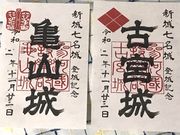 新城七名城 登城記念
亀山城
令和二年十一月廿三日
新城七名城 登城記念
古宮城
令和二年十一月廿三日